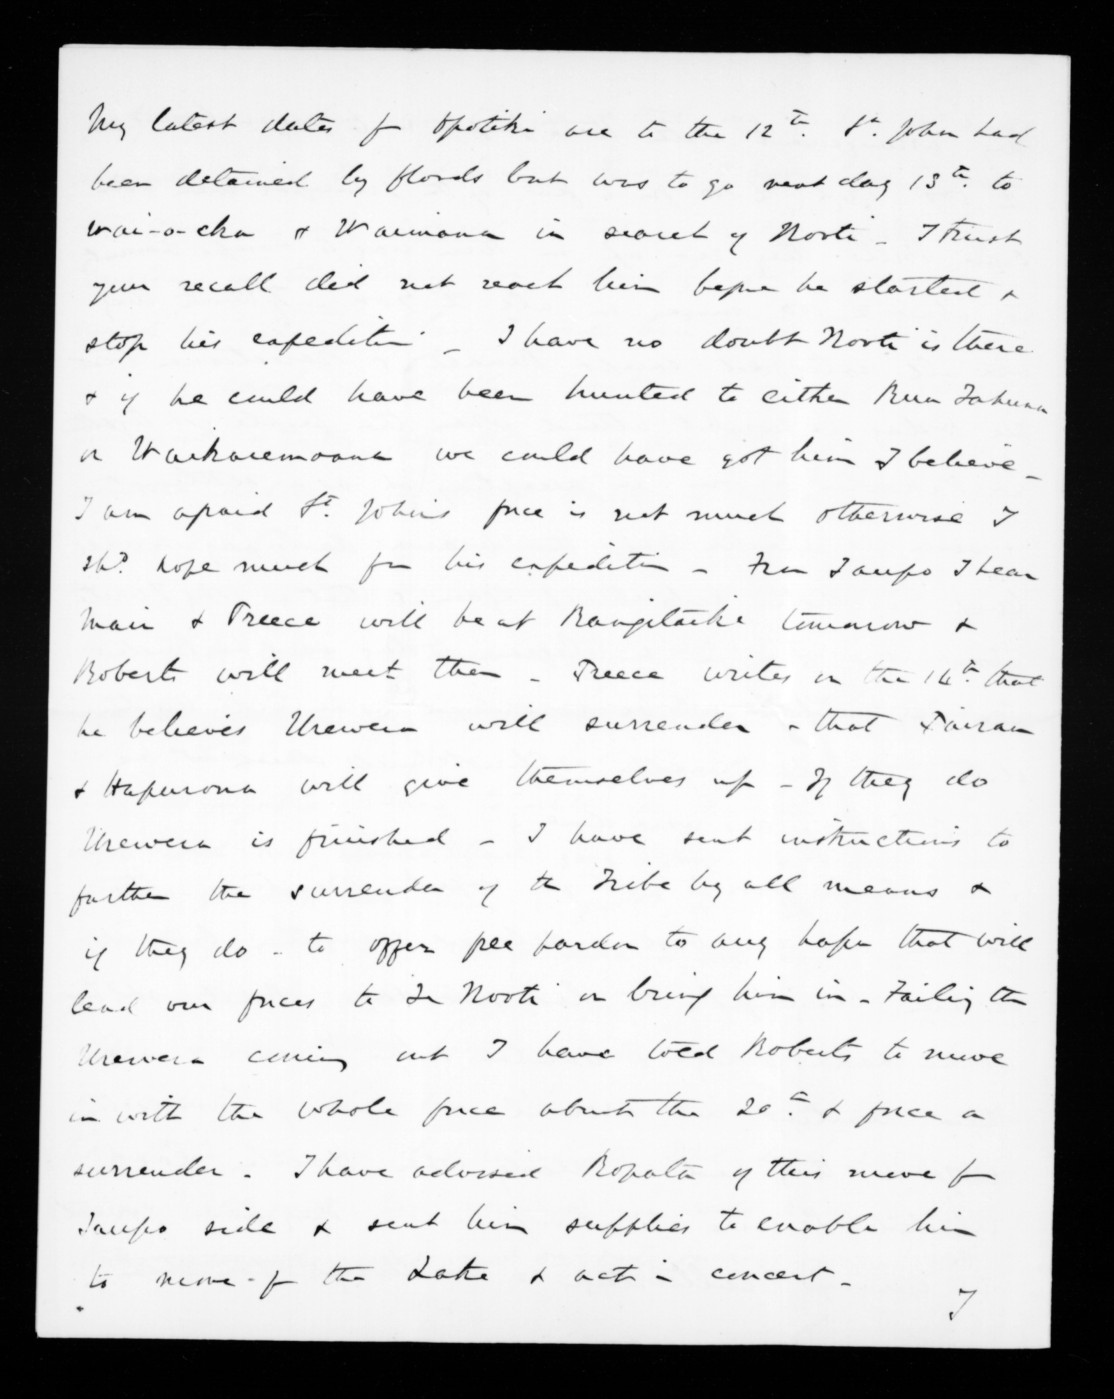 My latest dates f Opotiki are to the 12th. St. John had
been detained by floods but was to go next day 13th. to
Wai-o-eka & Waimana in search of Kooti - I trust
your recall did not reach him before he started &
stop his expedition - I have no doubt Kooti is there
& if he could have been hunted to either Rua Tahuna
or Waikaremoana we could have got him I believe -
I am afraid St. John's force is not much otherwise I
shd. hope much from his expedition - From Taupo I hear
Mair & Preece will be at Rangitaiki tomorrow &
Roberts will meet them - Preece writes on the 14th. that
he believes Urewera will surrender - that
& Hapurona will give themselves up - If they do
Urewera is finished - I have sent instructions to
further the surrender of the Tribe by all means &
if they do - to offer free pardon to any hapu that will
lead our forces to Te Kooti or bring him in - Failing the
Urewera coming out I have told Roberts to move
in with the whole force about the 20th. & force a
surrender. I have advised Ropata of this move f
Taupo side & sent him supplies to enable him
to move f the Lake & act in concert -
I